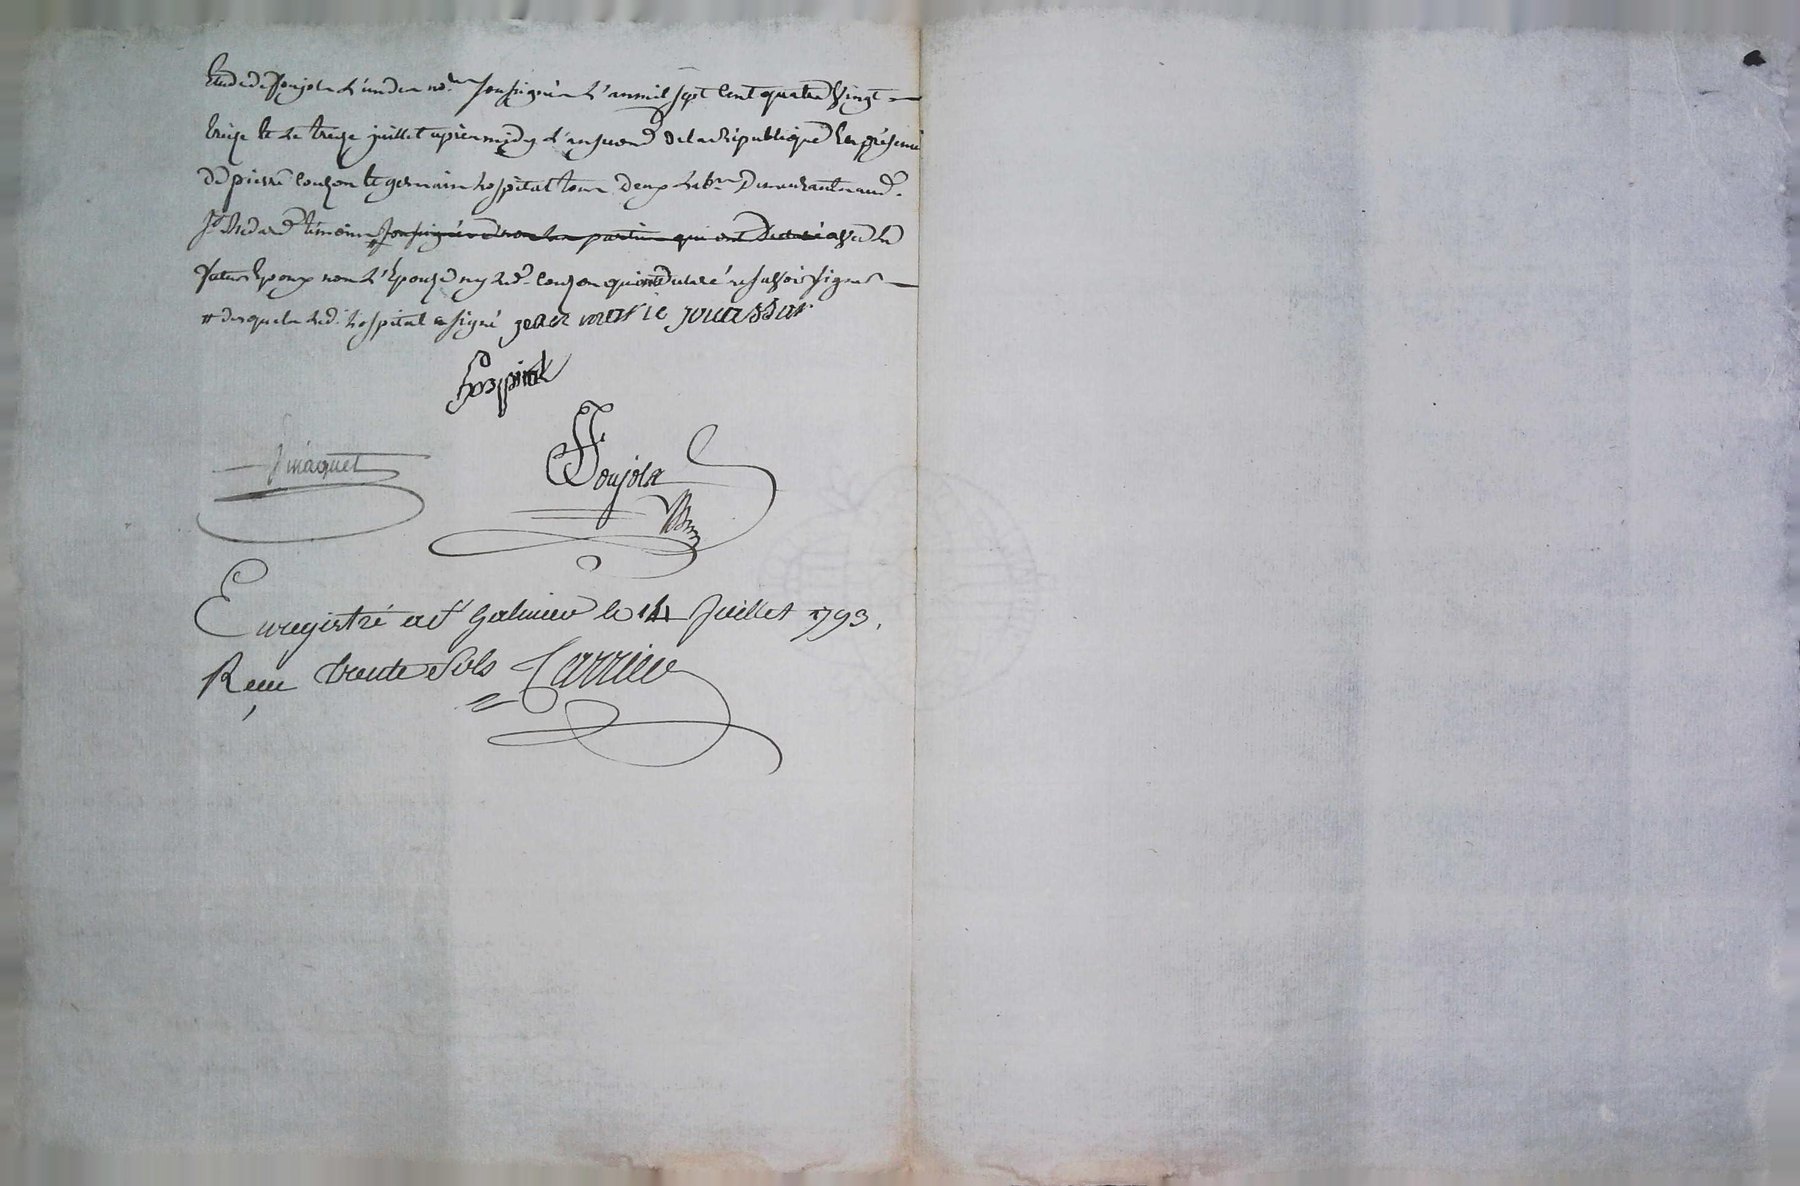 Etude de Ponjola l'un des no.res soussignés l'an mil sept cent quatre vingt
treize et le treize juillet après midy l'an second de la République En présence
de pierre couzon et germain hospital tous deux habn.
St Médard témoins soussignés non les parties qui ont déclaré avec le
futur Epoux non l'Epouse ny led. couzon qui ont déclaré ne savoir signer
desquels led. hospital a signé jean marie joussar
hospital
maquet
Ponjola
Enregistré a St Galmier le 14 Juillet 1793.
Reçu trente sols Carrier